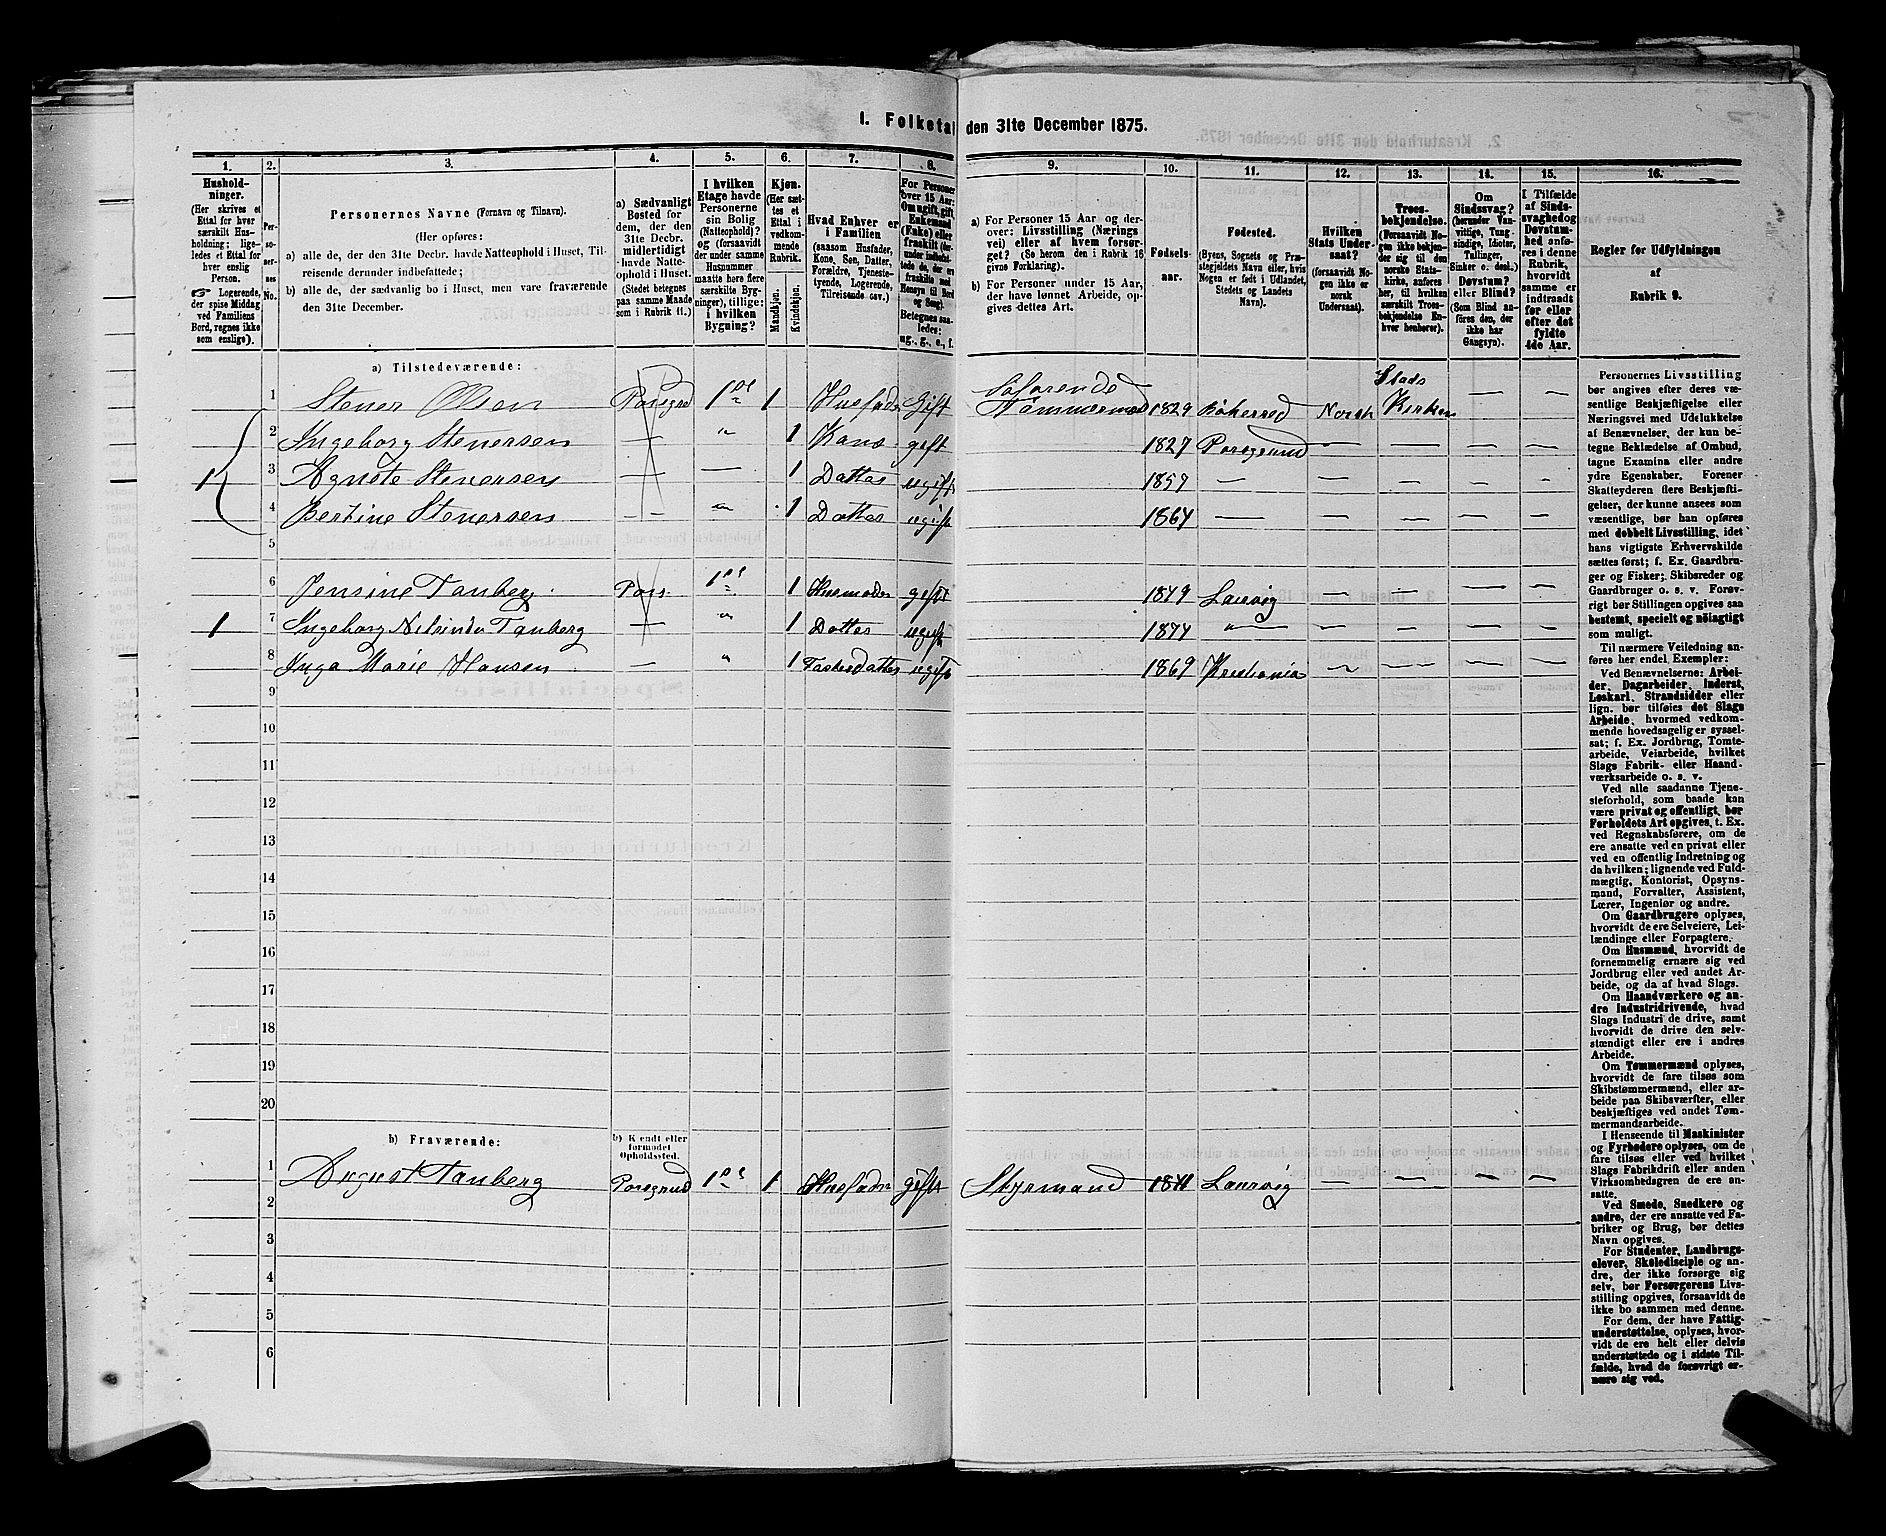 1. Folketal den 31te December 1875.
1. 2. 3. 4. 5. 6. 7. 8. 9. 10. 11. 12. 13. 14. 15. 16.
Hushold-
ninger.
(Her skrives et
Ettal for hver
særskilt Hus-
holdning; lige-
ledes et Ettal for
hver enslig
Person.
☞ Logerende,
der spise Middag
ved Familiens
Bord, regnes ikke
som enslige).
Per-
so-
ner-
nes
No.
Personernes Navne (Fornavn og Tilnavn).
(Her opføres:
a) alle de, der den 31te Decbr. havde Natteophold i Huset, Til-
reisende derunder indbefattede;
b) alle de, der sædvanlig bo i Huset, men vare fraværende
den 31te December.
a) Sædvanligt
Bosted for
dem, der den
31te Decbr.
midlertidigt
havde Natte-
ophold i Huset.
(Stedet betegnes
paa samme Maade
som i Rubrik 11.)
I hvilken
Etage havde
Personerne
sin Bolig
(Natteophold)?
og (forsaavidt
der under samme
Husnummer
maatte høre flere
særskilte Byg-
ninger), tillige:
i hvilken
Bygning?
Kjøn.
(Her sæt-
tes et
Ettal i
vedkom-
mende
Rubrik.
Mandkjøn.
Kvindekjøn.
Hvad Enhver er
i Familien
(saasom Husfader,
Kone, Søn, Datter,
Forældre, Tjeneste-
tyende, Logerende,
Tilreisende osv.)
For Personer
over 15 Aar:
Om ugift, gift,
Enkemand
(Enke) eller
fraskilt
Betegnes saa-
ledes:
ug., g., e., f.
a) For Personer 15 Aar og der-
over: Livsstilling (Nærings
vei) eller af hvem forsør-
get? (Se herom den i Rubrik 16
givne Forklaring).
b) For Personer under 15 Aar,
der have lønnet Arbeide, op-
gives dettes Art.
Fødsels-
aar.
Fødested.
(Byens, Sognets og Præ-
stegjeldets Navn eller, hvis
Nogen er født i Udlandet,
Stedets og Landets
Navn).
Hvilken
Stats Under-
saat?
(forsaavidt No-
gen ikke er
norsk
Undersaat).
Troes-
bekjendelse.
(Forsaavidt No-
gen ikke bekjen-
der sig til den
norske Stats-
kirke, anføres
her, til hvilken
særskilt Troes-
bekjendelse En-
hver henhører).
Om
Sindssvag?
(herunder Van-
vittige, Tung-
sindige, Idioter,
Tullinger,
Sinker o. desl.)
Døvstum?
eller Blind?
(Som Blind an-
føres den, der
ikke har
Gangsyn).
I Tilfælde
af Sinds-
svaghed og
Døvstum-
hed anfø-
res i denne
Rubrik,
hvorvidt
samme er
indtraadt
før eller
efter det
fyldte
4de Aar.
Regler for Udfyldningen
af
Rubrik 9.
a) Tilstedeværende:
1 Stener Olsen Porsgrd 1ste 1 Husfader Gift Søfarende Tømmermand 1829 Norsk Stads Kirken — —
2 Ingeborg Stenersen — " 1 Kone gift 1827 Porsgrund — — — —
1 3 Agnete Stenersen — — 1 Datter ugift 1857 — — — — —
4 Bertine Stenersen — " 1 Datter ugift 1864 — — — — —
5
6 Jensine Tanberg Pors 1ste 1 Husmoder gift 1849 Laurvig — — — —
1 7 Ingeborg Nelsine Tanberg — " 1 Datter ugift 1874 " — — — —
8 Inga Marie Hansen — " 1 Fosterdatter ugift 1869 Kristiania — — — —
9
10
11
12
13
14
15
16
17
18
19
20
b) Fraværende:
b) Kjendt eller
formodet
Opholdssted.
1 August Tanberg Porsgrund 1ste 1 Husfader gift Styrmand Laurvig — — — —
2
3
4
5
6
Personernes Livsstilling
bør angives efter deres væ-
sentlige Beskjæftigelse eller
Næringsvei med Udelukkelse
af Benævnelser, der kun be-
tegne Beklædelse af Ombud,
tagne Examina eller andre
ydre Egenskaber. Forener
Skatteyderen flere Beskjæfti-
gelser, der kunne ansees som
væsentlige, bør han opføres
med dobbelt Livsstilling, idet
hans vigtigste Erhvervskilde
sættes først; f. Ex. Gaardbru-
ger og Fisker; Skibsreder og
Gaardbruger o. s. v. Forøv-
rigt bør Stillingen opgives saa
bestemt, specielt og nøiagtigt
som muligt.
Til nærmere Veiledning an-
føres her endel Exempler:
Ved Benævnelserne: Arbei-
der, Dagarbeider, Inderst,
Løskarl, Strandsidder eller
lign. bør tilføies det Slags
Arbeide, hvormed vedkom-
mende hovedsagelig er syssel-
sat; f. Ex. Jordbrug, Tomte-
arbeide, Veiarbeide, hvilket
Slags Fabrik- eller Haand-
værksarbeide o. s. v.
Ved alle saadanne Tjene-
steforhold, som baade kan
være privat og offentligt, bør
Forholdets Art opgives, t. Ex.
ved Regnskabsførere, om de
ere ansatte ved en privat eller
ved en offentlig Indretning og
da hvilken; lignende ved Fuld-
mægtig, Kontorist, Opsyns-
mand, Forvalter, Assistent,
Lærer, Ingeniør og andre.
Om Gaardbrugere oplyses,
hvorvidt de ere Selveiere, Lei-
lændinge eller Forpagtere.
Om Husmænd, hvorvidt de
fornemmelig ernære sig ved
Jordbrug eller ved andet Ar-
beide, og da af hvad Slags.
Om Haandværkere og an-
dre Industridrivende, hvad
Slags Industri de drive, samt
hvorvidt de drive den selv-
stændigt eller ere i andres
Arbeide.
Om Tømmermænd oplyses,
hvorvidt de fare tilsøs som
Skibstømmermænd, eller ar-
beide paa Skibsværfter, eller
beskjæftiges ved andet Tøm-
mermandsarbeide.
I Henseende til Maskinister
og Fyrbødere oplyses, om de
fare tilsøs eller ved hvilket
Slags Fabrikdrift eller anden
Virksomhedsgren de ere an-
satte.
Ved Smede, Snedkere og
andre, der ere ansatte ved Fa-
briker og Brug, bør dettes
Navn opgives.
For Studenter, Landbrugs-
elever, Skoledisciple og an-
dre, der ikke forsørge sig
selv, bør Forsørgerens Livs-
stilling opgives, forsaavidt de
ikke bo sammen med denne.
For dem, der have Fattig-
understøttelse, oplyses, hvor-
vidt de ere helt eller delvis
understøttede og i sidste Til-
fælde, hvad de forøvrigt er-
nære sig ved.